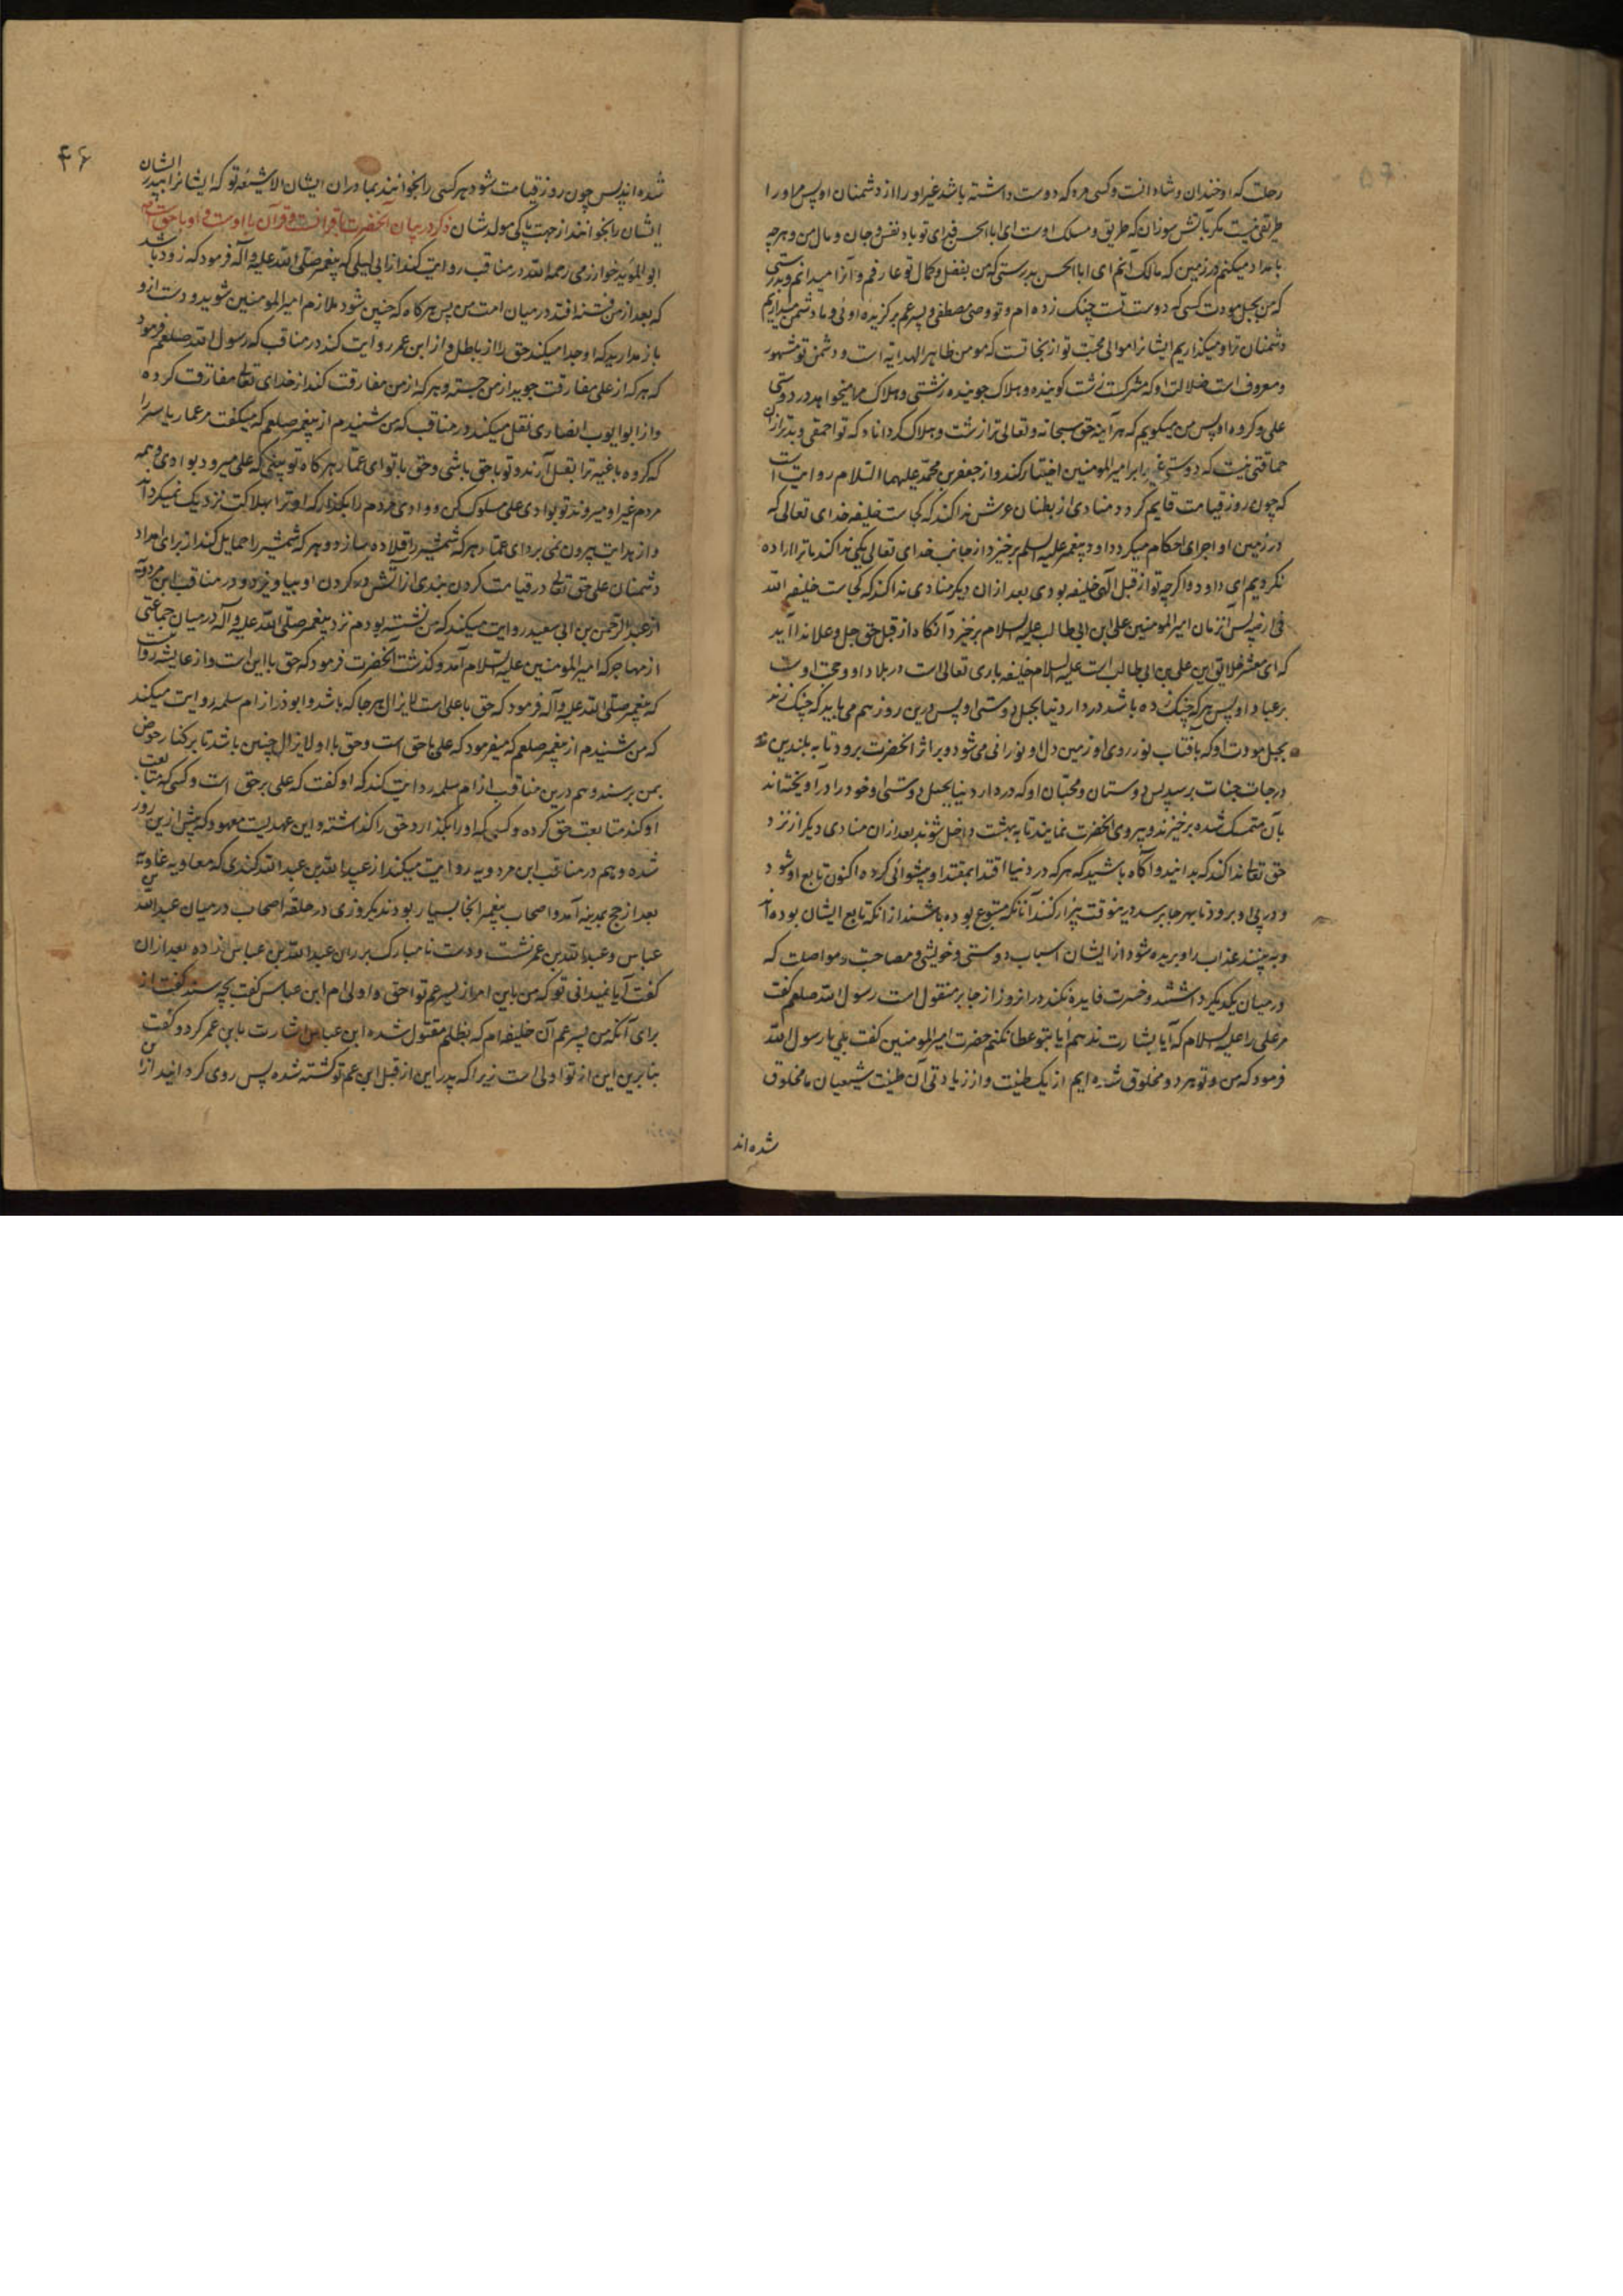 رحلت که او خندان و شادانست و کسی مرد که دوست داشته باشد غیر او را از دشمنان او پس مر او را
طریقی نیست مگر بآتش سوزان که طریق و مسلک اوست ای ابا الحسن فدای تو باد نفس و جان و مال من و هرچه
بامداد میکنم در زمین که مالک آنم ای ابا الحسن بدرستی که من بفضل و کمال تو عارفم و آنرا میدانم و بدرستی
که من بحبل مودت کسی که دوست تست چنگ زده ام و تو وصی مصطفی و پسر عم برگزیده اوئی و ما دشمن میداریم
دشمنان ترا و میگذاریم ایشانرا موالی محبت تو از نجاتست که مومن ظاهر الهدایة است و دشمن تو مشهور
و معروف است ضلالت او که مشرکست زشت گوینده و هلاک جوینده زشتی و هلاک مرا میخواهد در دوستی
علی و گروه او پس من میگویم که هر آینه حق سبحانه و تعالی ترا زشت و هلاک گرداناد که تو احمقی و بدتر ازان
حماقتی نیست که دوستی غیر را بر امیر المومنین اختیار کند و از جعفر بن محمد علیهما السلام روایت است
که چون روز قیامت قایم گردد منادی از بطنان عرش ندا کند که کجاست خلیفه خدای تعالی که
در زمین او اجرای احکام میکرد داود پیغمبر علیه السلم برخیزد از جانب خدای تعالی یکی ندا کند ما ترا اراده
نکردیم ای داود و اگرچه تو از قبل آلهی خلیفه بودی بعد ازان دیگر منادی ندا کند که کجاست خلیفه الله
فی ارضه پس آنزمان امیر المومنین علی ابن ابی طالب علیه السلام برخیزد آنکاه از قبل حق جل و علا ندا آید
که ای معشر خلایق این علی بن ابی طالب است علیه السلام خلیفه باری تعالی است در بلاد او و حجت اوست
بر عباد او پس هر که چنگ زده باشد در دار دنیا بحبل دوستی او پس درین روز هم می باید که چنگ زند
بحبل مودت او که بافتاب نور روی او زمین دل او نورانی می شود و بر اثر آنحضرت برود تا به بلندترین
درجات جنات برسد پس دوستان و محبان او که در دار دنیا بحبل دوستی او خود را در آویخته اند
بآن متمسک شده برخیزند و پیروی آنحضرت نمایند تا به بهشت داخل شوند بعد ازان منادی دیگر از نزد
حق تعالی ندا کند که بدانید و آگاه باشید که هر که در دنیا اقتدا بمقتدا و پیشوائی کرده اکنون تابع او شود
و در پی او برود تا بهر جا برسد درینوقت بیزار کنند آنانکه متبوع بوده باشند از انکه تابع ایشان بوده اند
و به بینند عذاب را و بریده شود از ایشان اسباب دوستی و خویشی و مصاحبت و مواصلت که
در میان یکدیگر داشتند و حسرت فایده نکند در انروز از جابر منقول است رسول الله صلعم گفت
مر علی را علیه السلام که آیا بشارت ندهم آیا بتو عطا نکنم حضرت امیر المومنین گفت بلی یا رسول الله
فرمود که من و تو هر دو مخلوق شده ایم از یک طینت و از زیادتی آن طینت شیعیان ما مخلوق
شده اند
۴۶
شده اند پس چون روز قیامت شود هر کسی را بخوانند بمادران ایشان الا شیعه تو که ایشانرا بپدر ایشان
ایشان را بخوانند از جهت پاکی مولد شان ذکر در بیان آنکه آنحضرت با قرآنست و قرآن با اوست و او با حق است
ابو المؤید خوارزمی رحمه الله در مناقب روایت کند از ابی لیلی که پیغمبر صلی الله علیه و آله فرمود که زود باشد
که بعد از من فتنه افتد در میان امت من پس هرگاه که چنین شود ملازم امیر المومنین شوید و دست ازو
باز مدارید که او جدا میکند حق را از باطل و از ابن عمر روایت کند در مناقب که رسول الله صلعم فرمود
که هر که از علی مفارقت جوید از من جسته و هر که از من مفارقت کند از خدای تعالی مفارقت کرده
و از ابو ایوب انصاری نقل میکند در مناقب که من شنیدم از پیغمبر صلعم که میگفت مر عمار یاسر را
که گروه باغیه ترا بقتل آرند و تو با حق باشی و حق با تو ای عمار هرگاه تو ببینی که علی میرود بوادی و همه
مردم غیر او میروند تو بوادی علی سلوک کن و وادی مردم را بگذار که او ترا بهلاکت نزدیک نمیگرداند
و از هدایت بیرون نمی برد ای عمار هر که شمشیر را قلاده سازد و هر که شمشیر را حمایل کند از برای امداد
دشمنان علی حق تعالی در قیامت گردن بندی از آتش در گردن او بیاویزد و در مناقب ابن مردویه
از عبد الرحمن بن ابی سعید روایت میکند که من نشسته بودم نزد پیغمبر صلی الله علیه و آله در میان جماعتی
از مهاجر که امیر المومنین علیه السلام آمد و گذشت آنحضرت فرمود که حق با این است و از عایشه روایت
که پیغمبر صلی الله علیه و آله فرمود که حق با علی است لا یزال هر جا که باشد و ابوذر از ام سلمه روایت میکند
که من شنیدم از پیغمبر صلعم که میفرمود که علی با حق است و حق با او لا یزال چنین باشد تا بر کنار حوض
بمن برسند و هم درین مناقب از ام سلمه روایت کند که او گفت که علی بر حق است و کسی که متابعت
او کند متابعت حق کرده و کسی که او را بگذارد حق را گذاشته و این عهدیست معهود که پیش ازین روز
شده و هم در مناقب ابن مردویه روایت میکند از عبد الله بن عبد الله کندی که معاویه غاویه
بعد از حج بمدینه آمد و اصحاب پیغمبر انجا بسیار بودند یکروزی در حلقه اصحاب در میان عبد الله بن
عباس و عبد الله بن عمر نشست و دست نامبارک بر ران عبد الله بن عباس زده بعد ازان
گفت آیا نمیدانی تو که من باین امر از پسر عم تو احق و اولی ام ابن عباس گفت بچه سند گفت از
برای آنکه من پسر عم آن خلیفه ام که بظلم مقتول شده ابن عباس اشارت بابن عمر کرد و گفت
بنابرین این از تو اولی است زیرا که پدر این از قبل ابن عم تو کشته شده پس روی گردانید از ابن